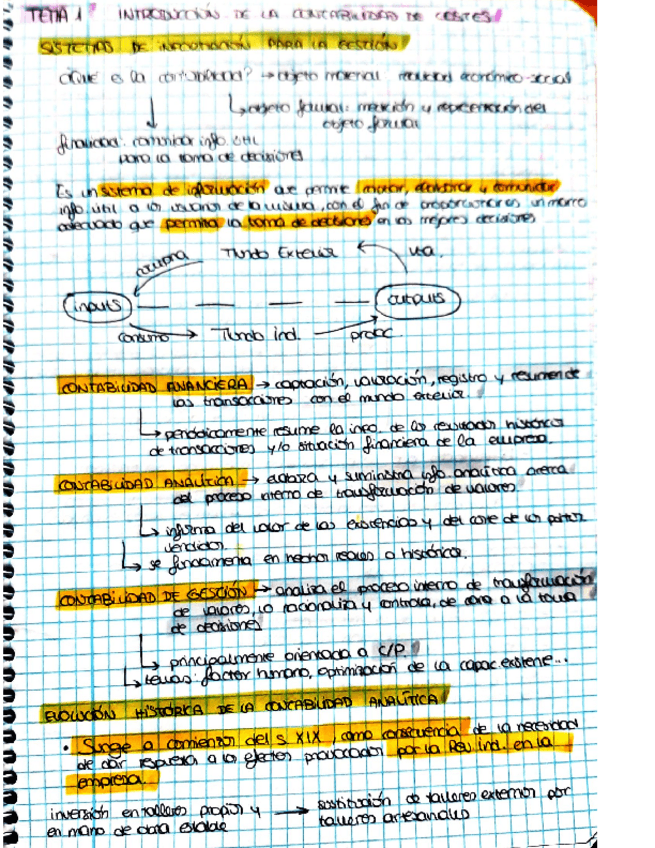 TEMA 1 INTRODUCCIÓN DE LA CONTABILIDAD DE COSTES
SISTEMAS DE INFORMACIÓN PARA LA GESTIÓN
¿Qué es la contabilidad? → objeto material realidad económico-social
↳ objeto formal: medición y representación del
objeto formal
finalidad: comunicar info. útil
para la toma de decisiones
Es un sistema de información que permite motor, elaborar y comunicar
info. útil a los usuarios de la misma, con el fin de proporcionar un marco
adecuado que permita la toma de decisiones en las mejores decisiones
compra Mundo Exterior vta.
inputs — — — — outputs
consumo → Mundo ind. → produc.
CONTABILIDAD FINANCIERA → captación, valoración, registro y resumen de
las transacciones con el mundo exterior.
↳ periódicamente resume la info. de los resultados históricos
de transacciones y/o situación financiera de la empresa.
CONTABILIDAD ANALÍTICA → elabora y suministra info analítica acerca
del proceso interno de transformación de valores.
↳ informa del valor de las existencias y del coste de los
vendidos
↳ se fundamenta en hechos reales o históricos.
CONTABILIDAD DE GESTIÓN → analiza el proceso interno de transformación
de valores, lo racionaliza y controla, de cara a la toma
de decisiones
↳ principalmente orientada a C/P.
↳ temas: factor humano, optimización de la capac. existene...
EVOLUCIÓN HISTÓRICA DE LA CONTABILIDAD ANALÍTICA
• Surge a comienzos del s. XIX como consecuencia de la necesidad
de dar respuesta a los efectos provocados por la Rev. ind. en la
empresa.
inversión en talleres propios y → sustitución de talleres externos por
en mano de obra estable talleres artesanales